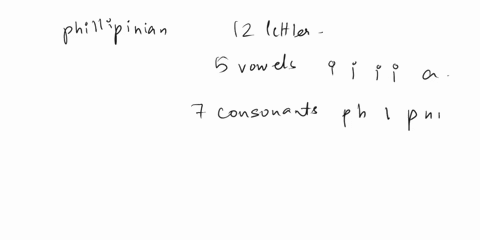 phillipinian 12 letter.
5 vowels i i i i a.
7 consonants ph l pn